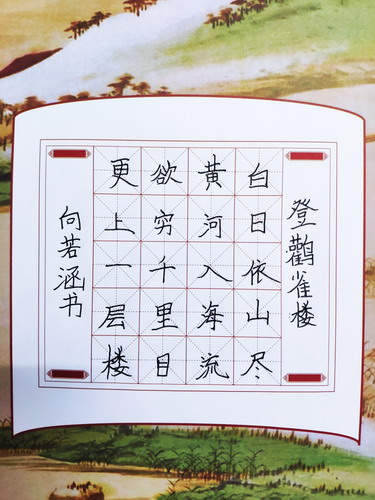 登鹳雀楼
白日依山尽
黄河入海流
欲穷千里目
更上一层楼
向若涵书